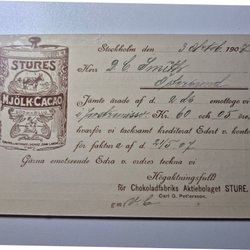 STURES
MJÖLK-CACAO
Stockholm den 3 Oktob. 1907
Herr D. C. Smith
Östersund
Jämte ärade af d. 2 ds emottogo vi
Kr. 60 och 05 öre,
hvarför vi tacksamt krediterat Edert
för faktura af d. 21/5 07
Gärna emotseende Edra v. ordres teckna vi
Högaktningsfullt
för Chokladfabriks Aktiebolaget STURE.
Carl G. Petersson.